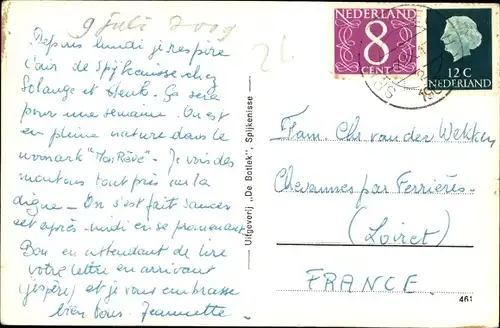 9 juli 2009
Depuis lundi je respire
l'air de Spijkenisse chez
Solange et Henk. Ça sera
pour une semaine. On est
en pleine nature dans le
woonark "Mon Rêve". Je vois des
moutons tout près sur la
digue. On s'est fait saucer
cet après midi en se promenant
Bon en attendant de lire
votre lettre en arrivant
(j'espère) et je vous embrasse
bien tous. Jeannette
Uitgeverij „De Botlek", Spijkenisse
NEDERLAND
8
CENT
12 C
NEDERLAND
Fam. Chr. van der Wekken
Chevannes par Ferrières
(Loiret)
FRANCE
461